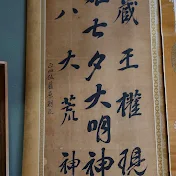 蔵王権現
七夕大明神
八大荒神